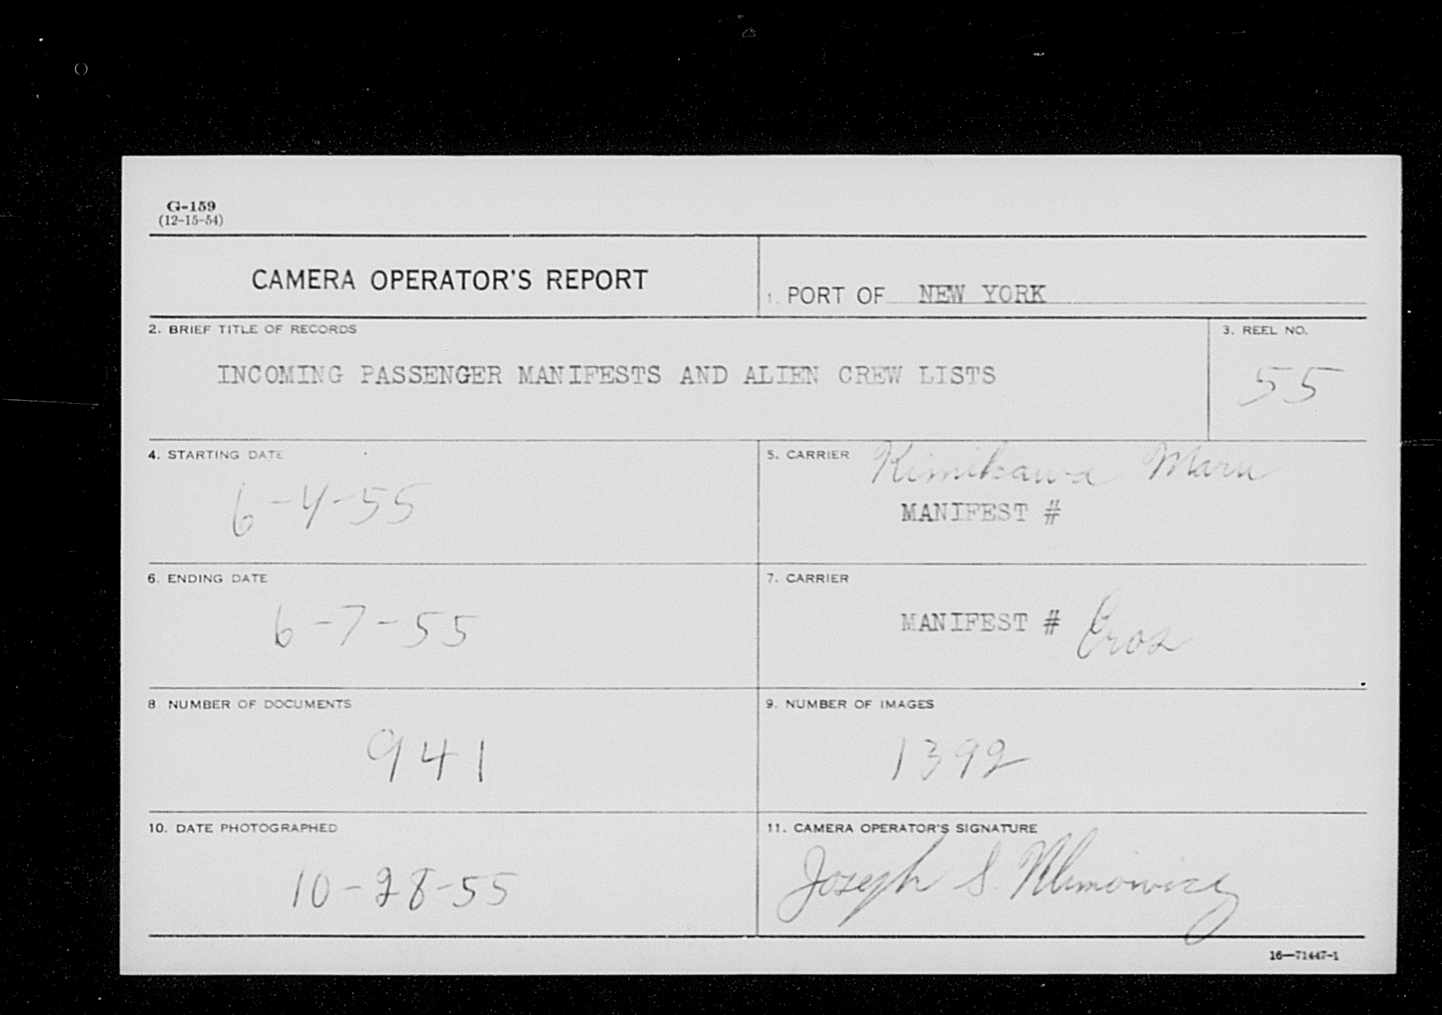 G-159
(12-15-54)
CAMERA OPERATOR'S REPORT
1. PORT OF NEW YORK
2. BRIEF TITLE OF RECORDS
INCOMING PASSENGER MANIFESTS AND ALIEN CREW LISTS
3. REEL NO.
55
4. STARTING DATE
6-4-55
5. CARRIER Kimikawa Maru
MANIFEST #
6. ENDING DATE
6-7-55
7. CARRIER
MANIFEST # Eros
8 NUMBER OF DOCUMENTS
941
9. NUMBER OF IMAGES
1392
10. DATE PHOTOGRAPHED
10-28-55
11. CAMERA OPERATOR'S SIGNATURE
Joseph S.
16—71447-1